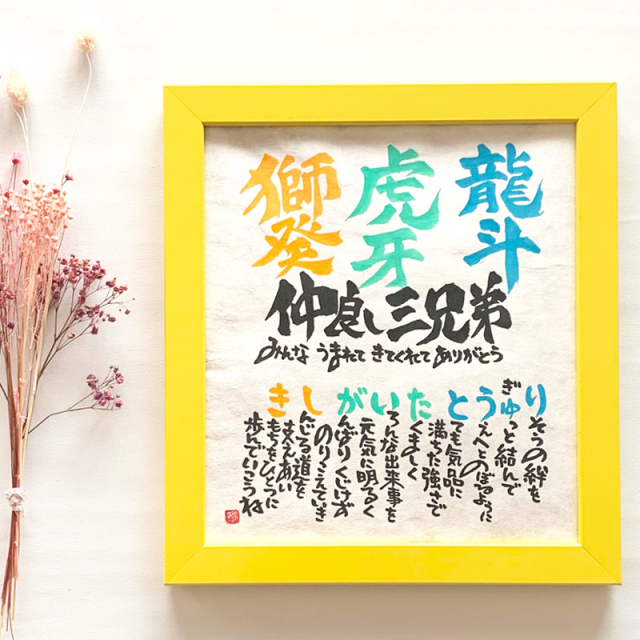 龍斗
虎牙
獅癸
仲良し三兄弟
みんな うまれて きてくれて ありがとう
りそうの絆を
ぎゅっと結んで
うえへとのぼるように
とても気品に
満ちた強さで
たくましく
いろんな出来事を
元気に明るく
がんばりくじけず
のりこえていき
しんじる道を
支えあい
きもちをひとつに
歩んでいこうね